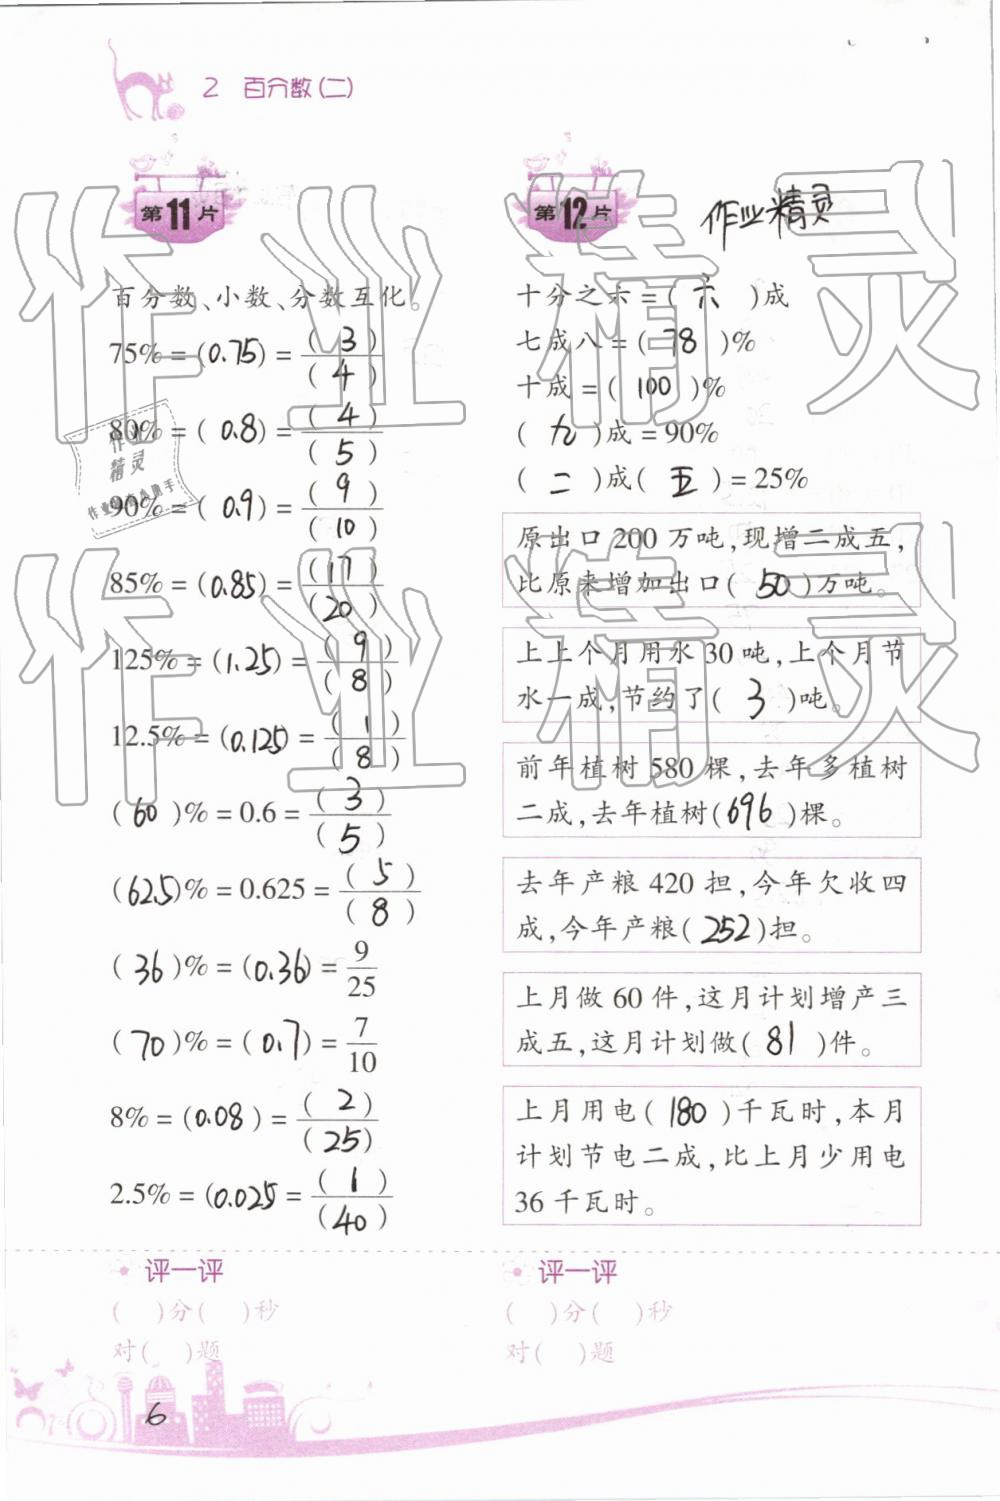 2 百分数(二)
第11片
百分数、小数、分数互化。
75% = (0.75) = (3)/(4)
80% = (0.8) = (4)/(5)
90% = (0.9) = (9)/(10)
85% = (0.85) = (17)/(20)
125% = (1.25) = (9)/(8)
12.5% = (0.125) = (1)/(8)
(60)% = 0.6 = (3)/(5)
(62.5)% = 0.625 = (5)/(8)
(36)% = (0.36) = 9/25
(70)% = (0.7) = 7/10
8% = (0.08) = (2)/(25)
2.5% = (0.025 = (1)/(40)
评一评
( )分( )秒
对( )题
第12片
作业精灵
十分之六 = (六)成
七成八 = (78)%
十成 = (100)%
(九)成 = 90%
(二)成(五) = 25%
原出口 200 万吨,现增二成五,
比原来增加出口(50)万吨。
上上个月用水 30 吨,上个月节
水一成,节约了(3)吨。
前年植树 580 棵,去年多植树
二成,去年植树(696)棵。
去年产粮 420 担,今年欠收四
成,今年产粮(252)担。
上月做 60 件,这月计划增产三
成五,这月计划做(81)件。
上月用电(180)千瓦时,本月
计划节电二成,比上月少用电
36 千瓦时。
评一评
( )分( )秒
对( )题
6
作业精灵
作业精灵
作业
精灵